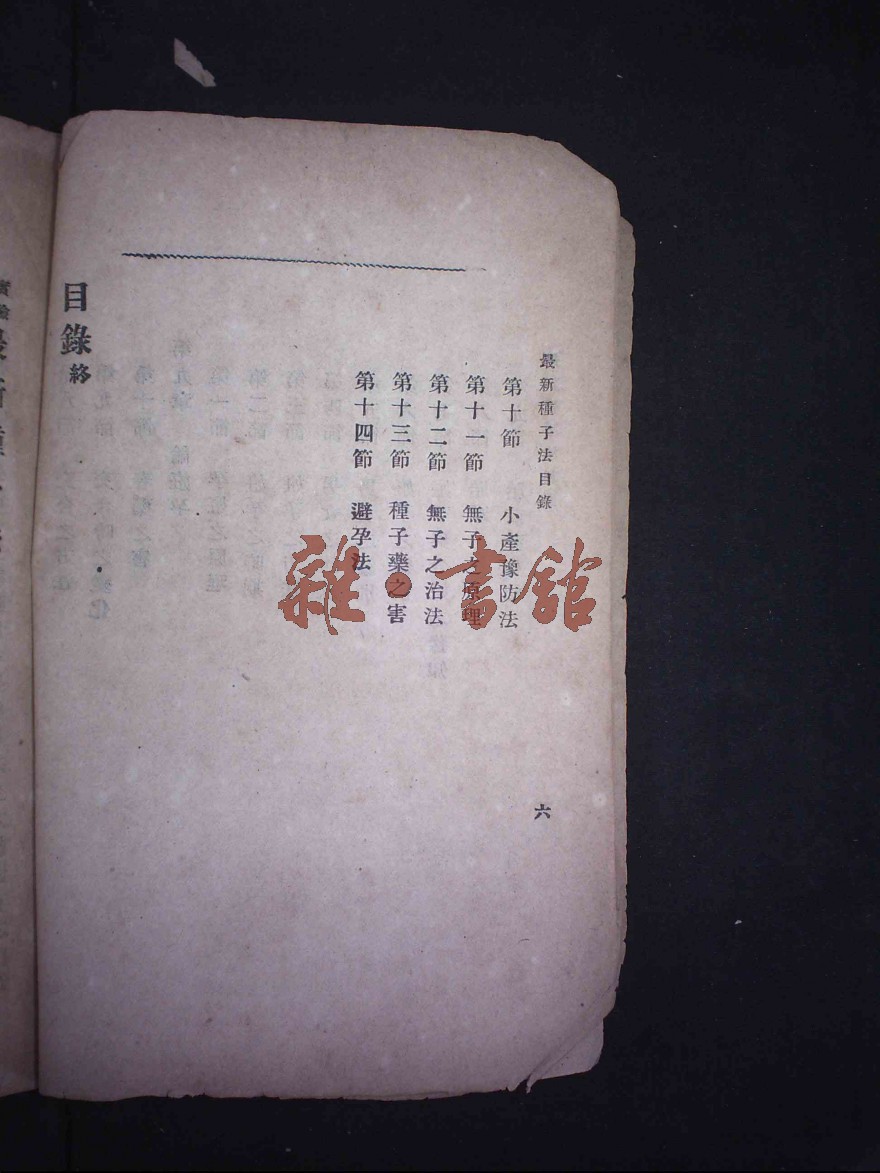 最新種子法目錄
六
第十節 小產豫防法
第十一節 無子之原理
第十二節 無子之治法
第十三節 種子藥之害
第十四節 避孕法
目錄終
雜·書館